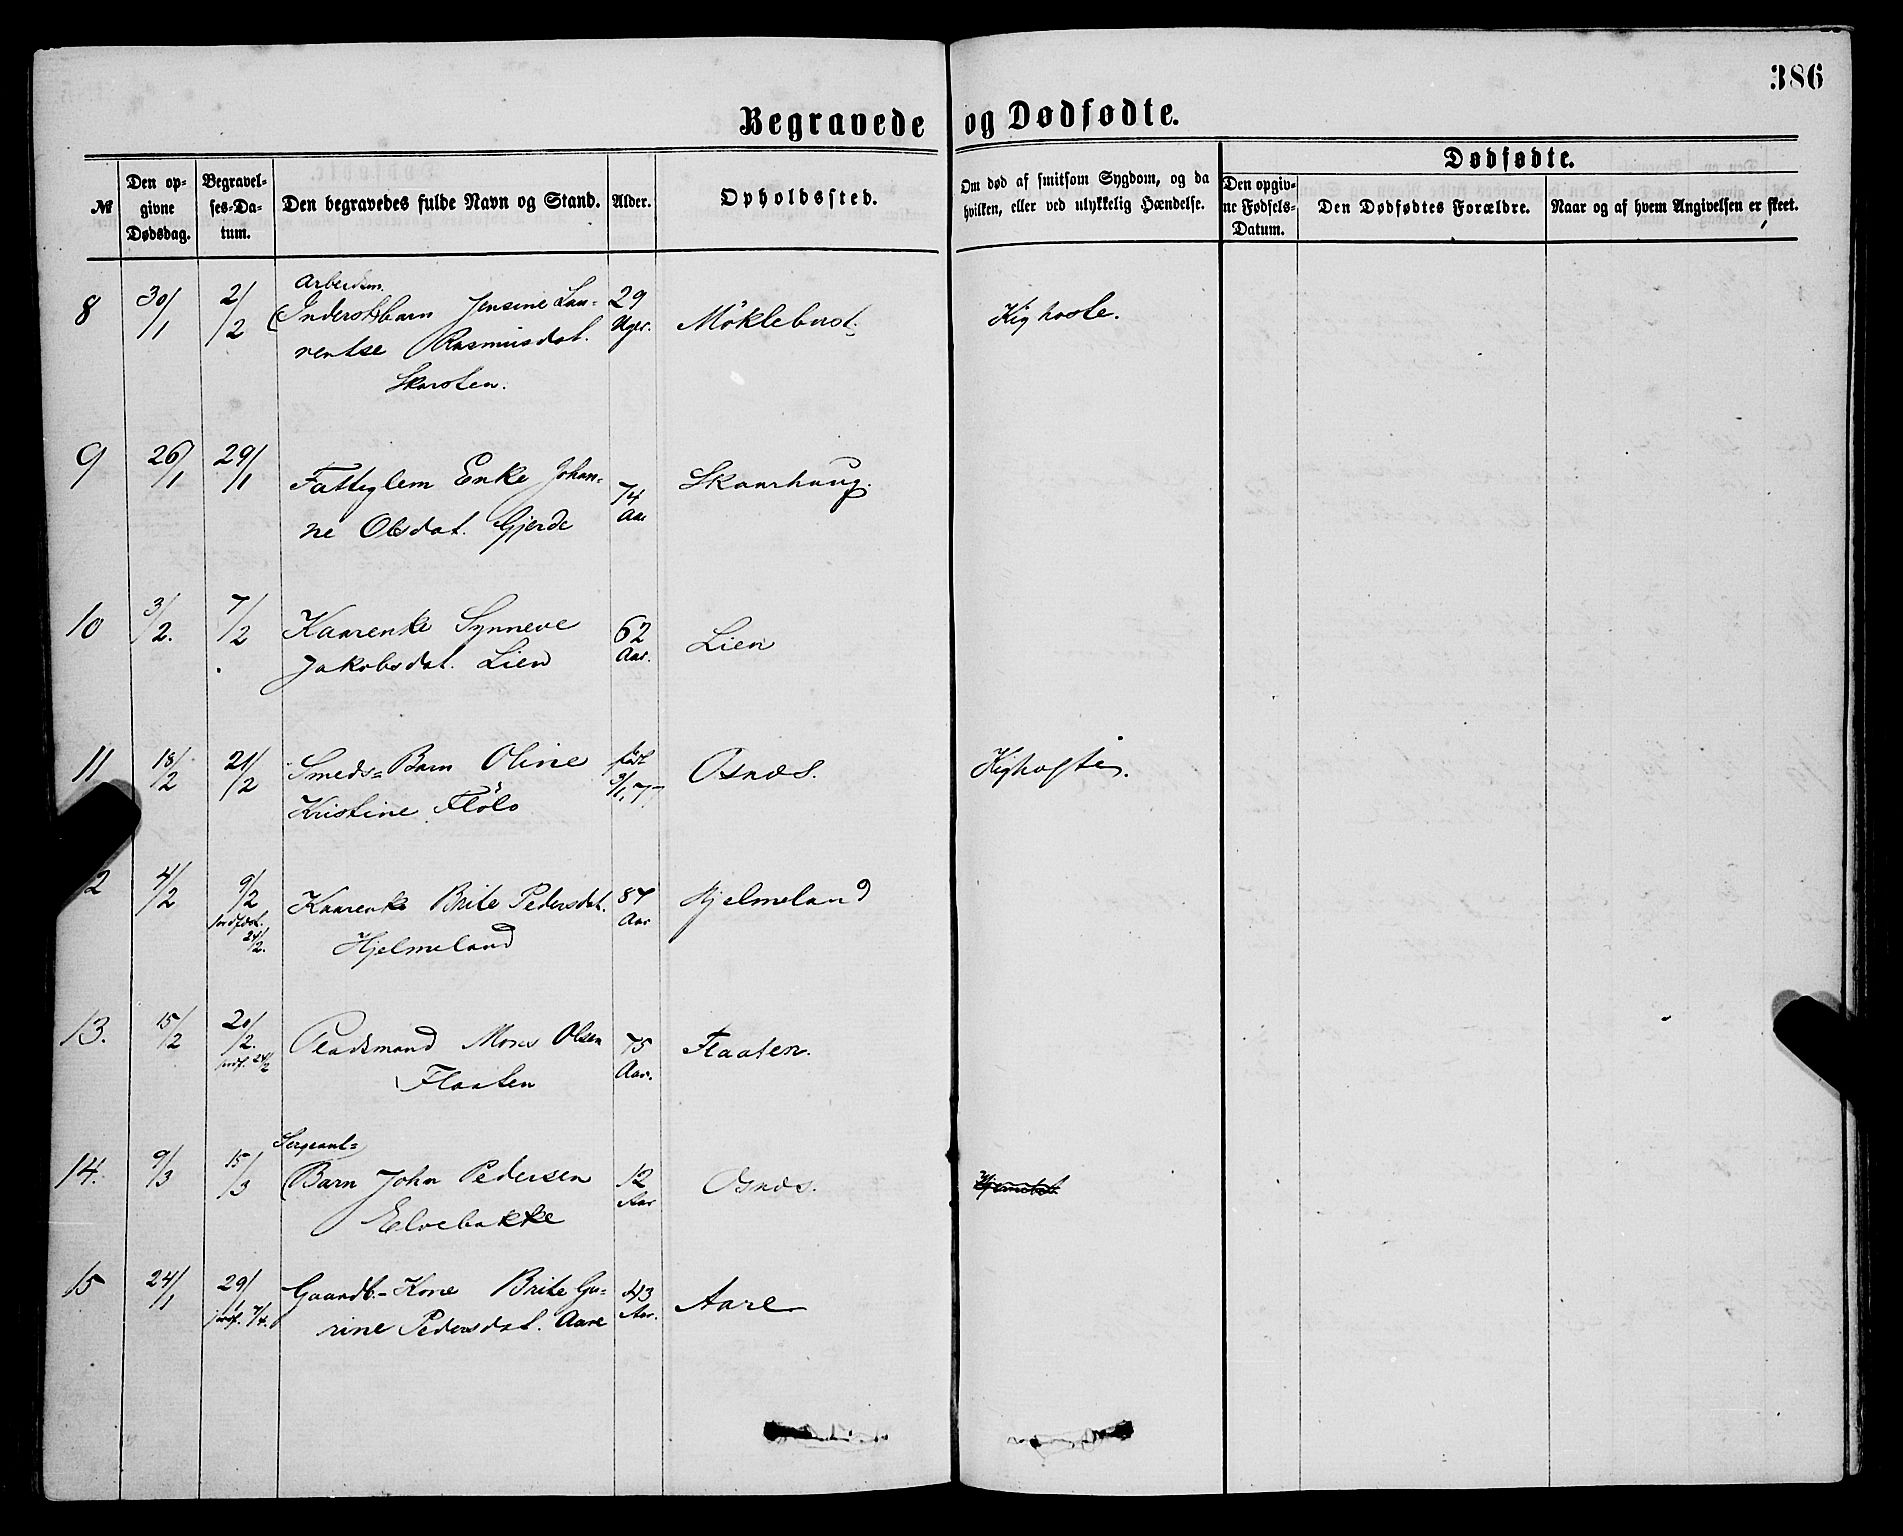 386
Begravede og Dødfødte.
Dødfødte.
№
Den op-
givne
Dødsdag.
Begravel-
ses-Da-
tum.
Den begravedes fulde Navn og Stand.
Alder.
Opholdssted.
Om død af smitsom Sygdom, og da
hvilken, eller ved ulykkelig Hændelse.
Den opgiv-
ne Fødsels-
Datum.
Den Dødfødtes Forældre.
Naar og af hvem Angivelsen er skeet.
Arbeidsm.
8 30/1 2/2 Inderstbarn Jensine Lau- 29 Møkleburst. Kighoste.
rentse Rasmusdat. Uger.
Skarsten.
9 26/1 29/1 Fattiglem Enke Johan- 74 Skaarhaug.
ne Olsdat. Gjerde Aar
10 3/2. 7/2 Kaarenke Synneve 62 Lien
Jakobsdat. Lien Aar.
11 18/2 21/2 Smeds-Barn Oline født Osnæs. Kighoste.
Kristine Flölo 9/1 77
12 4/2 9/2 Kaarenke Brite Pedersdat. 87 Hjelmeland
jordfæst. 24/2. Hjelmeland Aar
13. 15/2 20/2. Pladsmand Mons Olsen 75 Flaaten.
jordf. 24/2 Flaaten Aar.
Sergeant-
14. 9/3 15/3 Barn John Pedersen 12 Osnæs.
Elvebakke Aar
15 24/1 29/1 Gaardb.-Kone Brite Gu- 43 Aare
jordf. 7/4. rine Pedersdat. Aare Aar.